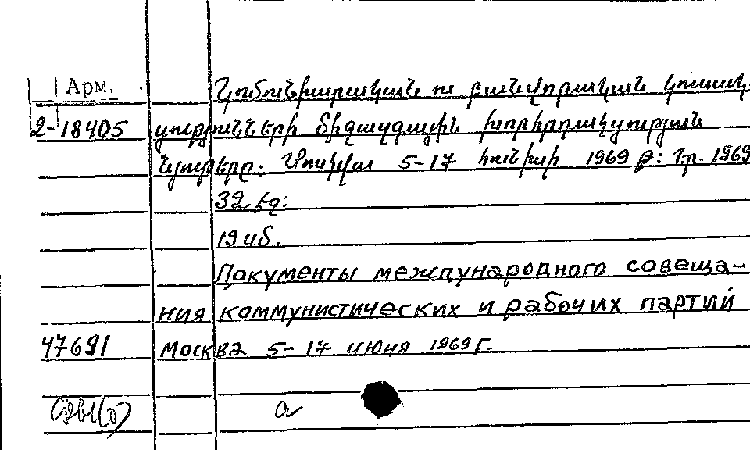 Арм. Կոմունիստական ու բանվորական կուսակ-
2-18405 ցությունների միջազգային խորհրդակցության
նյութերը: Մոսկվա 5-17 հունիսի 1969 թ: Եր. 1969
32 էջ:
19 սմ.
Документы международного совеща-
ния коммунистических и рабочих партий
47691 Москва 5-17 июня 1969 г.
а